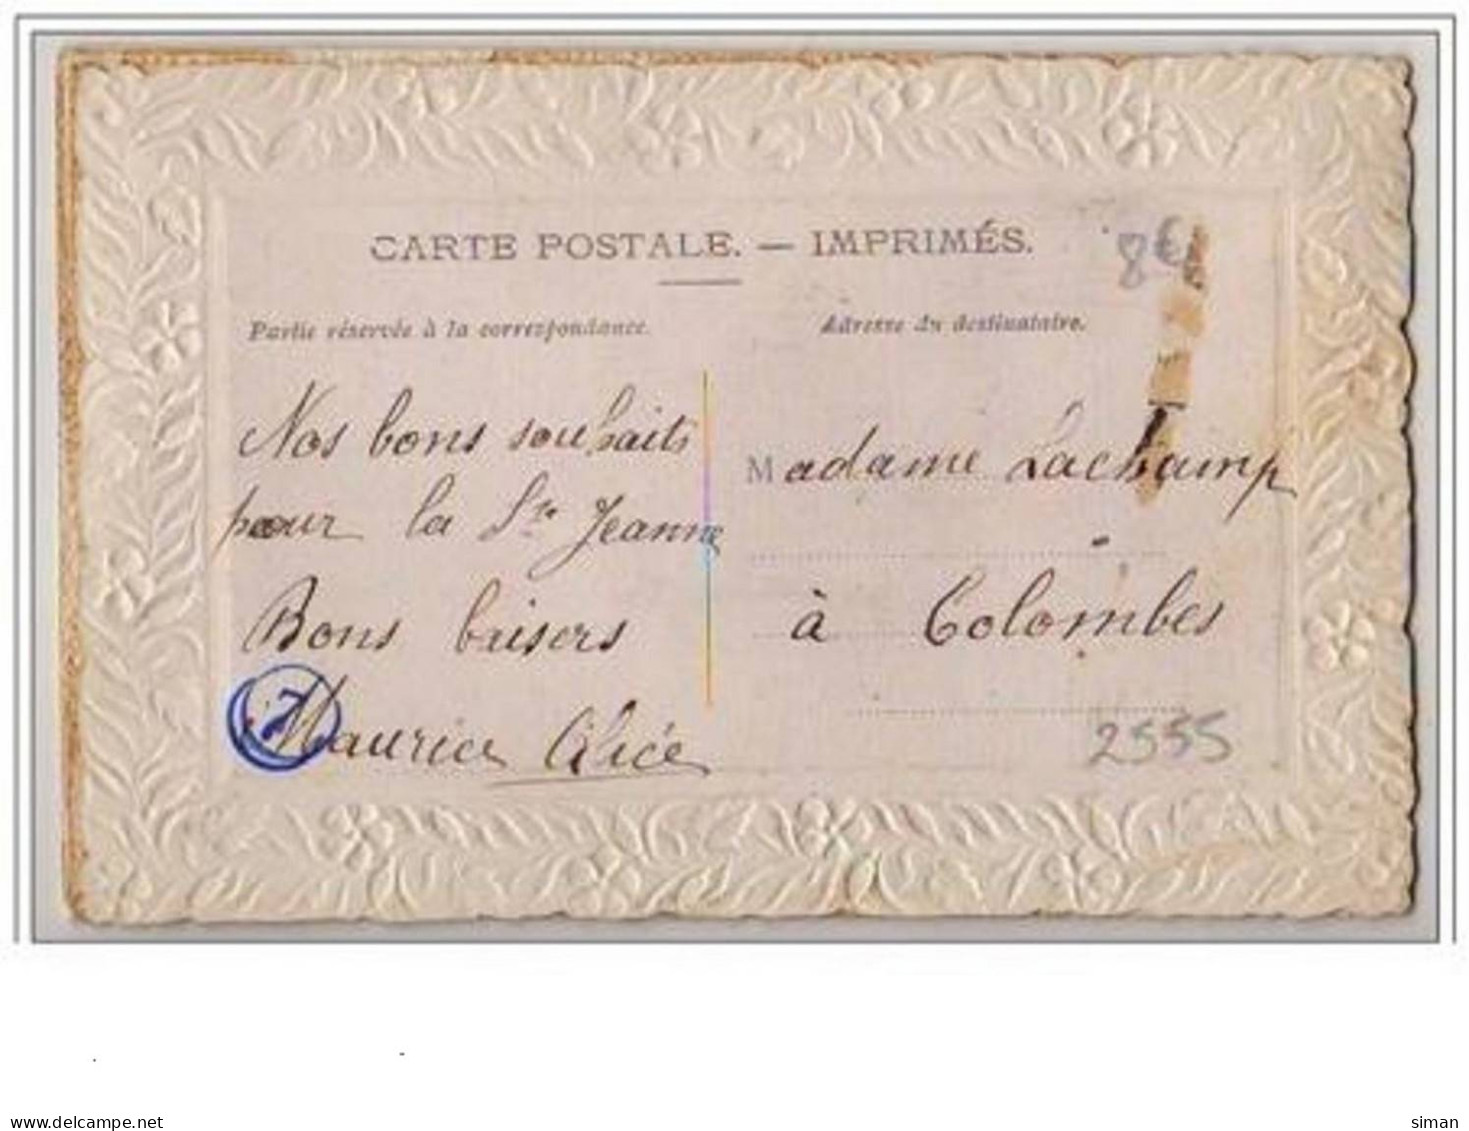 CARTE POSTALE. — IMPRIMÉS.
8€
Partie réservée à la correspondance.
Adresse du destinataire.
Nos bons souhaits
pour la Ste Jeanne
Bons baisers
Maurice Alice
Madame Lachamp
à Colombes
2555
delcampe.net
siman